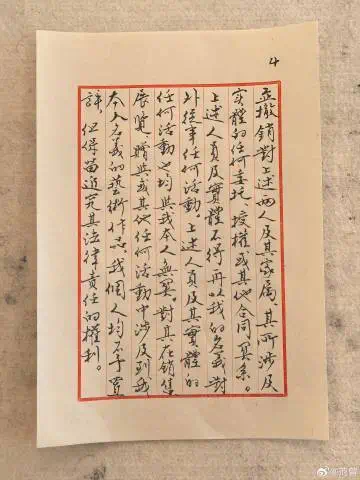 4
並撤銷對上述兩人及其家属、其所涉及
實體的任何委托、授權或其他合同関系。
上述人員及實體不得再以我的名義對
外從事任何活動。上述人員及其實體的
任何活動之均與我本人無関。對其在銷售
展覽、贈與或其他任何活動中涉及到我
本人名義的藝術作品，我個人均不予置
評，但保留追究其法律責任的權利。
@范曾